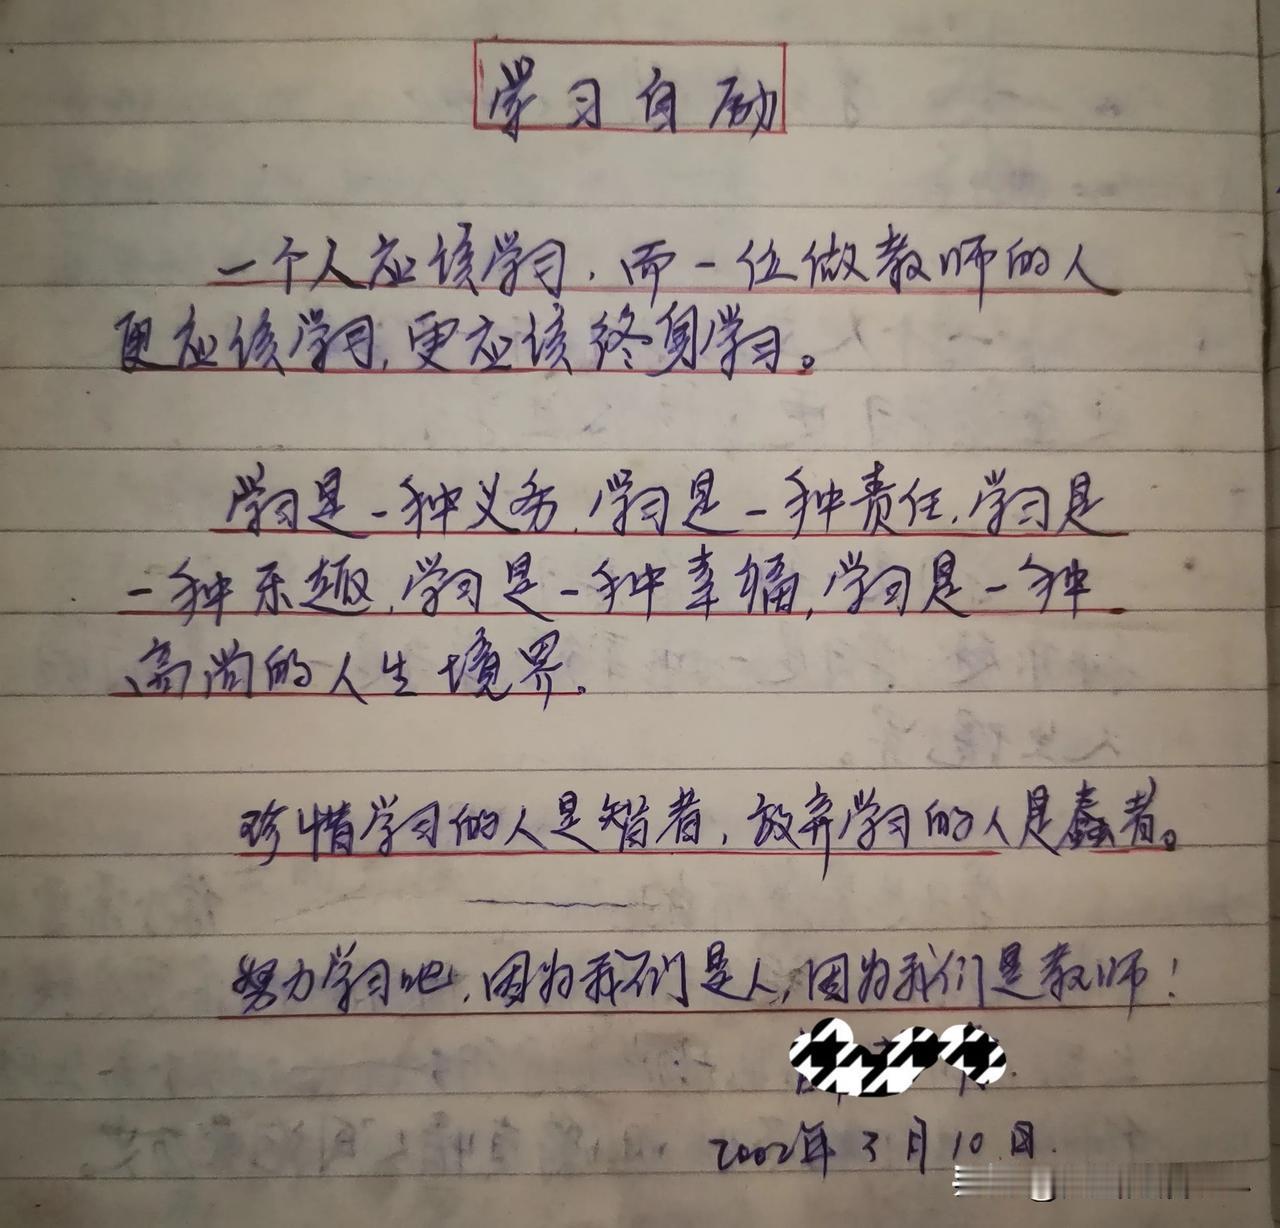 学习自励
一个人应该学习，而一位做教师的人
更应该学习，更应该终身学习。
学习是一种义务，学习是一种责任，学习是
一种乐趣，学习是一种幸福，学习是一种
高尚的人生境界。
珍惜学习的人是智者，放弃学习的人是蠢者。
努力学习吧，因为我们是人，因为我们是教师！
2002年3月10日